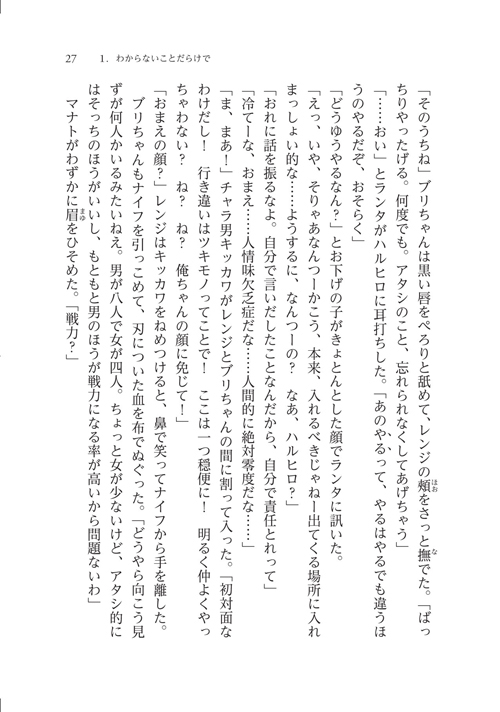 27　1．わからないことだらけで
「そのうちね」ブリちゃんは黒い唇をぺろりと舐めて、レンジの頬をさっと撫でた。「ばっ
ちりやったげる。何度でも。アタシのこと、忘れられなくしてあげちゃう」
「……おい」とランタがハルヒロに耳打ちした。「あのやるって、やるはやるでも違うほ
うのやるだぞ、おそらく」
「どうゆうやるなん？」とお下げの子がきょとんとした顔でランタに訊いた。
「えっ、いや、そりゃあなんつーかこう、本来、入れるべきじゃねー出てくる場所に入れ
まっしょい的な……ようするに、なんつーの？　なあ、ハルヒロ？」
「おれに話を振るなよ。自分で言いだしたことなんだから、自分で責任とれって」
「冷てーな、おまえ……人情味欠乏症だな……人間的に絶対零度だな……」
「ま、まあ！」チャラ男キッカワがレンジとブリちゃんの間に割って入った。「初対面な
わけだし！　行き違いはツキモノってことで！　ここは一つ穏便に！　明るく仲よくやっ
ちゃわない？　ね？　ね？　俺ちゃんの顔に免じて！」
「おまえの顔？」レンジはキッカワをねめつけると、鼻で笑ってナイフから手を離した。
ブリちゃんもナイフを引っこめて、刃についた血を布でぬぐった。「どうやら向こう見
ずが何人かいるみたいねえ。男が八人で女が四人。ちょっと女が少ないけど、アタシ的に
はそっちのほうがいいし、もともと男のほうが戦力になる率が高いから問題ないわ」
マナトがわずかに眉をひそめた。「戦力？」